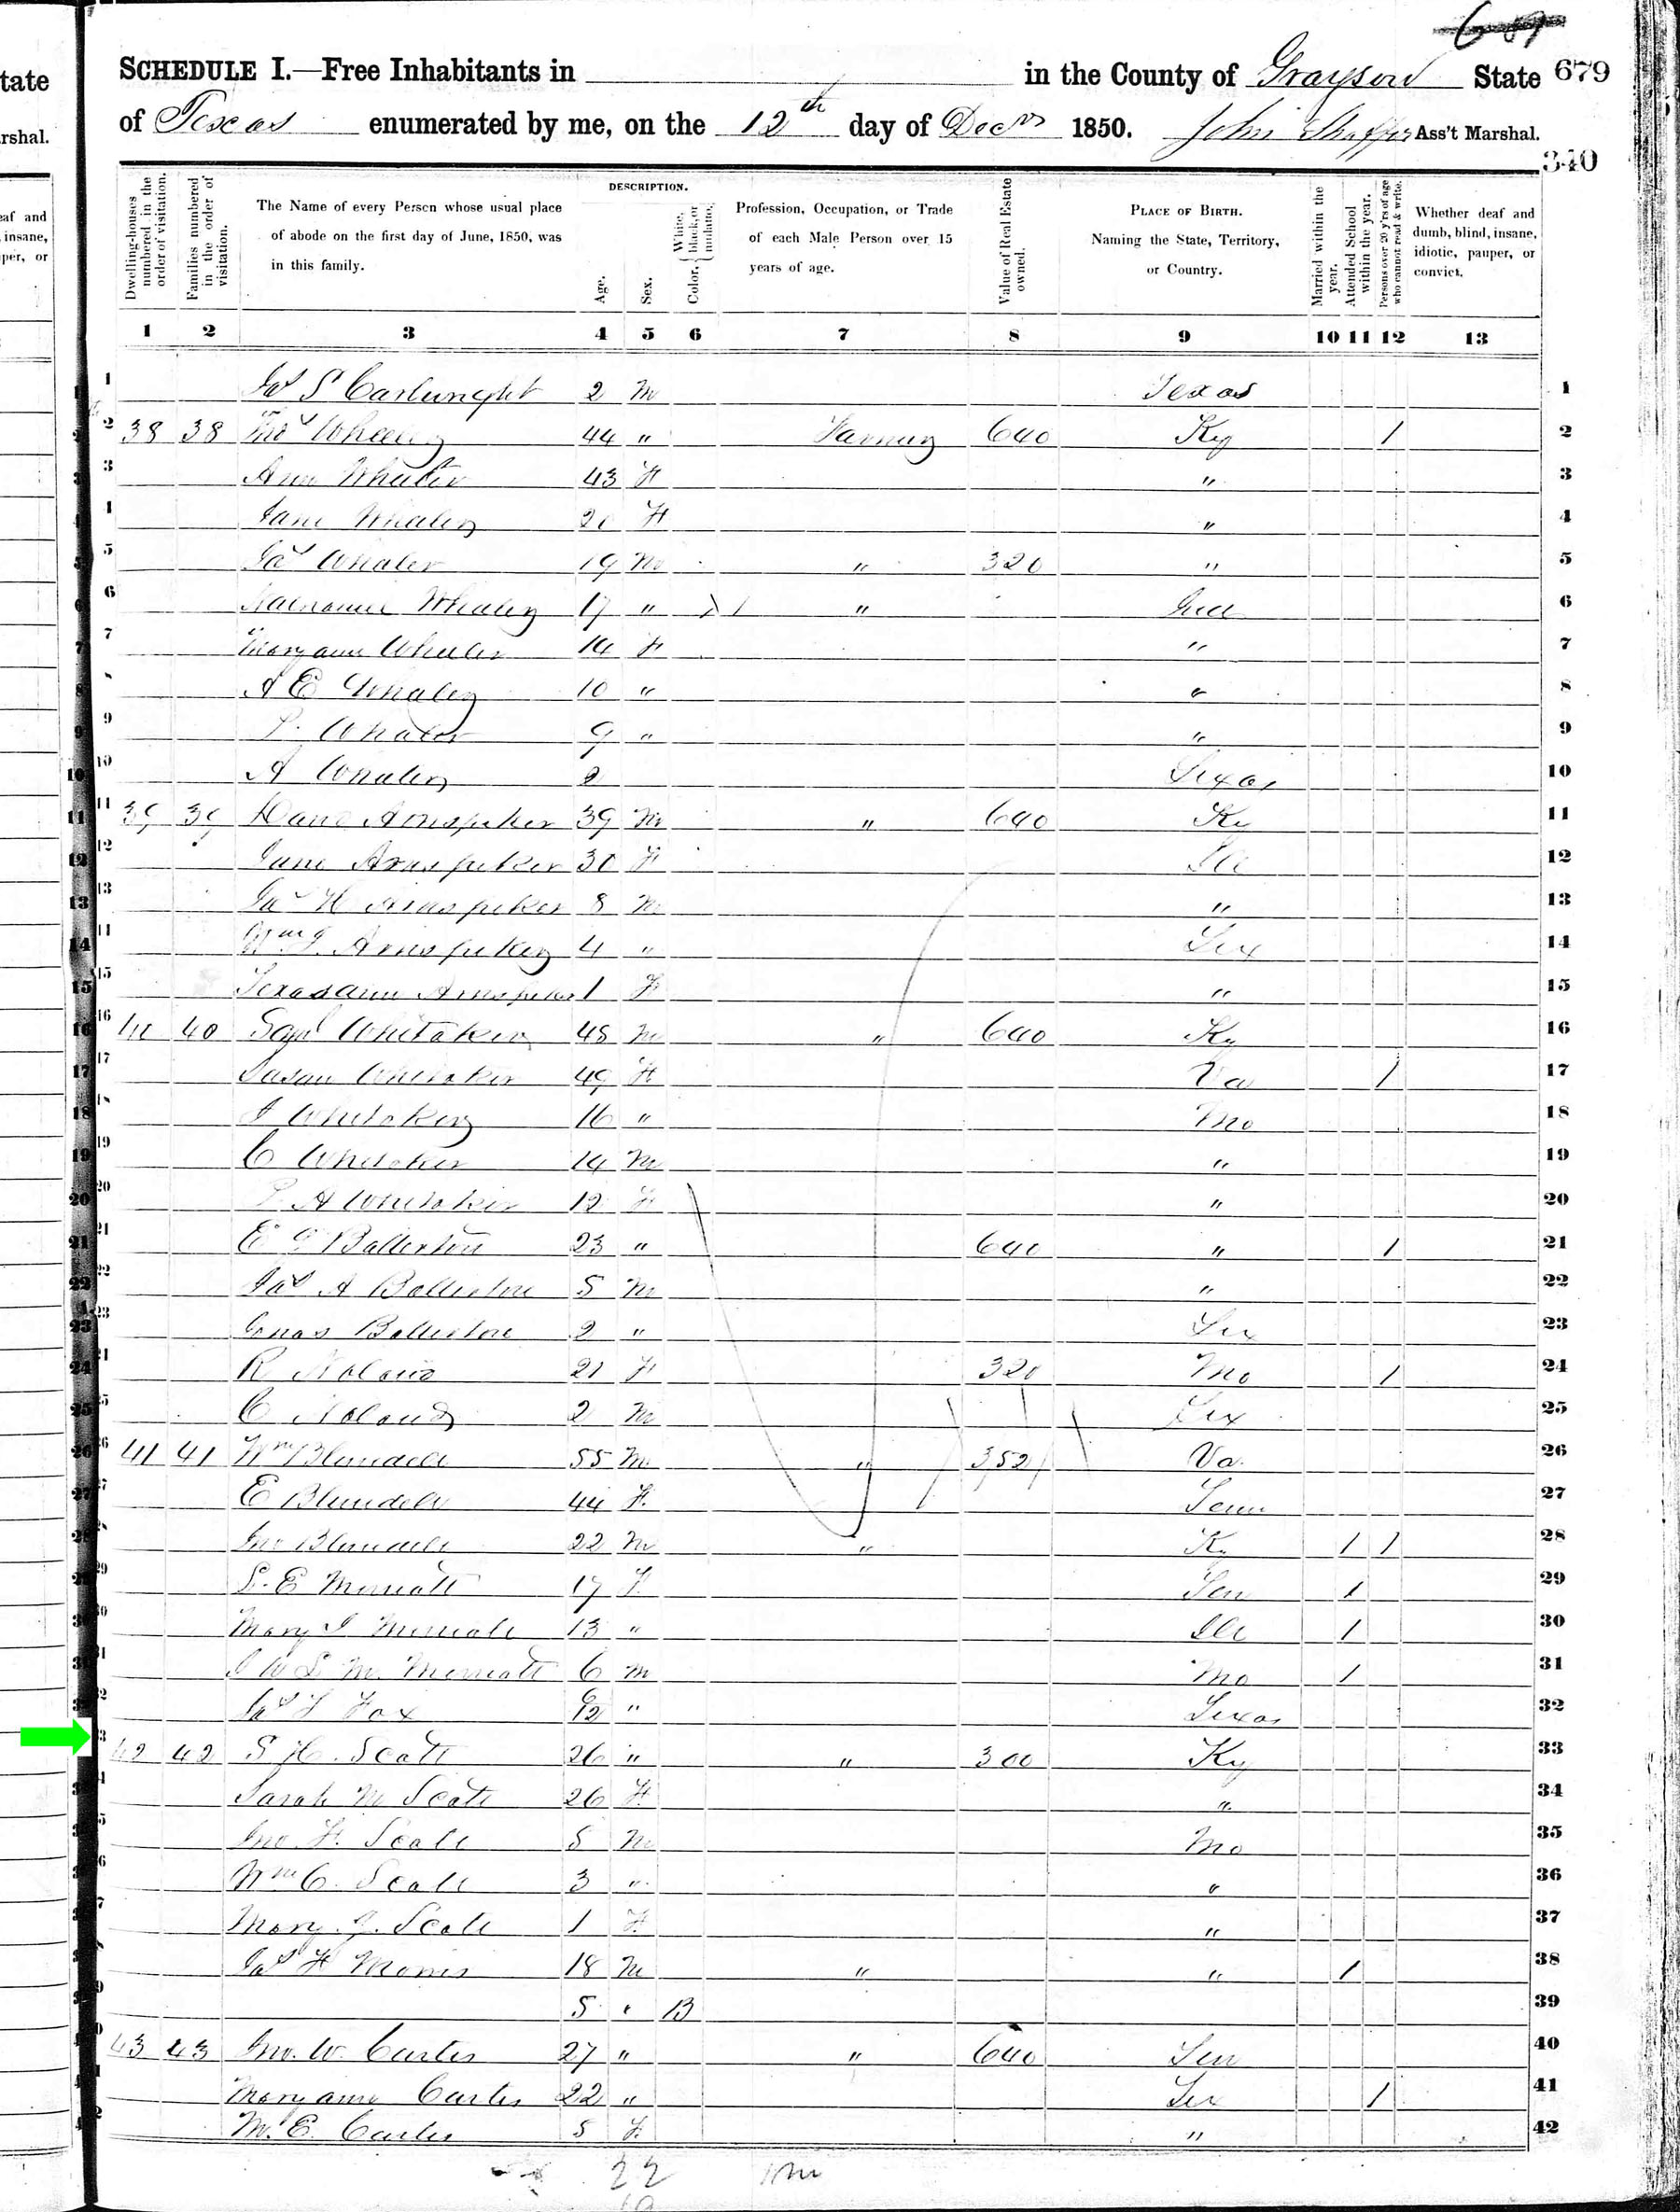 tate
rshal.
679
SCHEDULE I.—Free Inhabitants in in the County of Grayson State 679
of Texas enumerated by me, on the 12th day of Decr 1850. John Shaffer Ass't Marshal.
340
Dwelling-houses numbered in the order of visitation.
Families numbered in the order of visitation.
The Name of every Person whose usual place of abode on the first day of June, 1850, was in this family.
DESCRIPTION.
Age.
Sex.
Color, White, black, or mulatto.
Profession, Occupation, or Trade of each Male Person over 15 years of age.
Value of Real Estate owned.
PLACE OF BIRTH. Naming the State, Territory, or Country.
Married within the year.
Attended School within the year.
Persons over 20 y'rs of age who cannot read & write.
Whether deaf and dumb, blind, insane, idiotic, pauper, or convict.
1 2 3 4 5 6 7 8 9 10 11 12 13
1 Jas S Cartwright 2 M Texas 1
2 38 38 Whaley 44 " Farming 640 Ky / 2
3 Ann Whaley 43 F " 3
4 Jane Whaley 20 F " 4
5 Jas Whaley 19 M " 320 " 5
6 Whaley 17 " " 6
7 Mary ann Whaley 14 F " 7
8 A E Whaley 10 " " 8
9 Whaley 9 " " 9
10 A Whaley 2 Texas 10
11 39 39 Arnspiker 39 M " 640 Ky 11
12 Jane Arnspiker 30 F Ill 12
13 Jas H Arnspiker 8 M " 13
14 Wm Arnspiker 4 " Tex 14
15 Texas ann Arnspiker 1 F " 15
16 40 40 Saml Whitaker 48 M " 640 Ky 16
17 Susan Whitaker 49 F Va / 17
18 Whitaker 16 " Mo 18
19 C Whitaker 14 M " 19
20 A Whitaker 12 F " 20
21 E 23 " 640 " / 21
22 Jas A 5 M " 22
23 2 " Tex 23
24 R Noland 21 F 320 Mo / 24
25 C Noland 2 M Tex 25
26 41 41 Wm Blundell 55 M " 352 Va. 26
27 E Blundell 44 F. Tenn 27
28 Jno Blundell 22 M " Ky / / 28
29 E 17 F Ten / 29
30 Mary 13 " Ill / 30
31 6 M Mo / 31
32 Jas Fox 9/12 " Texas 32
33 42 42 S H. Scott 26 " " 300 Ky 33
34 Sarah M Scott 26 F " 34
35 Jno. F. Scott 5 M Mo 35
36 Wm C. Scott 3 " " 36
37 Mary J. Scott 1 F. " 37
38 Jas H Morris 18 M " " / 38
39 5 " B 39
40 43 43 Jno. W. Carter 27 " " 640 Ten 40
41 Mary ann Carter 22 " Tex / 41
42 M. E. Carter 5 F. " 42
22